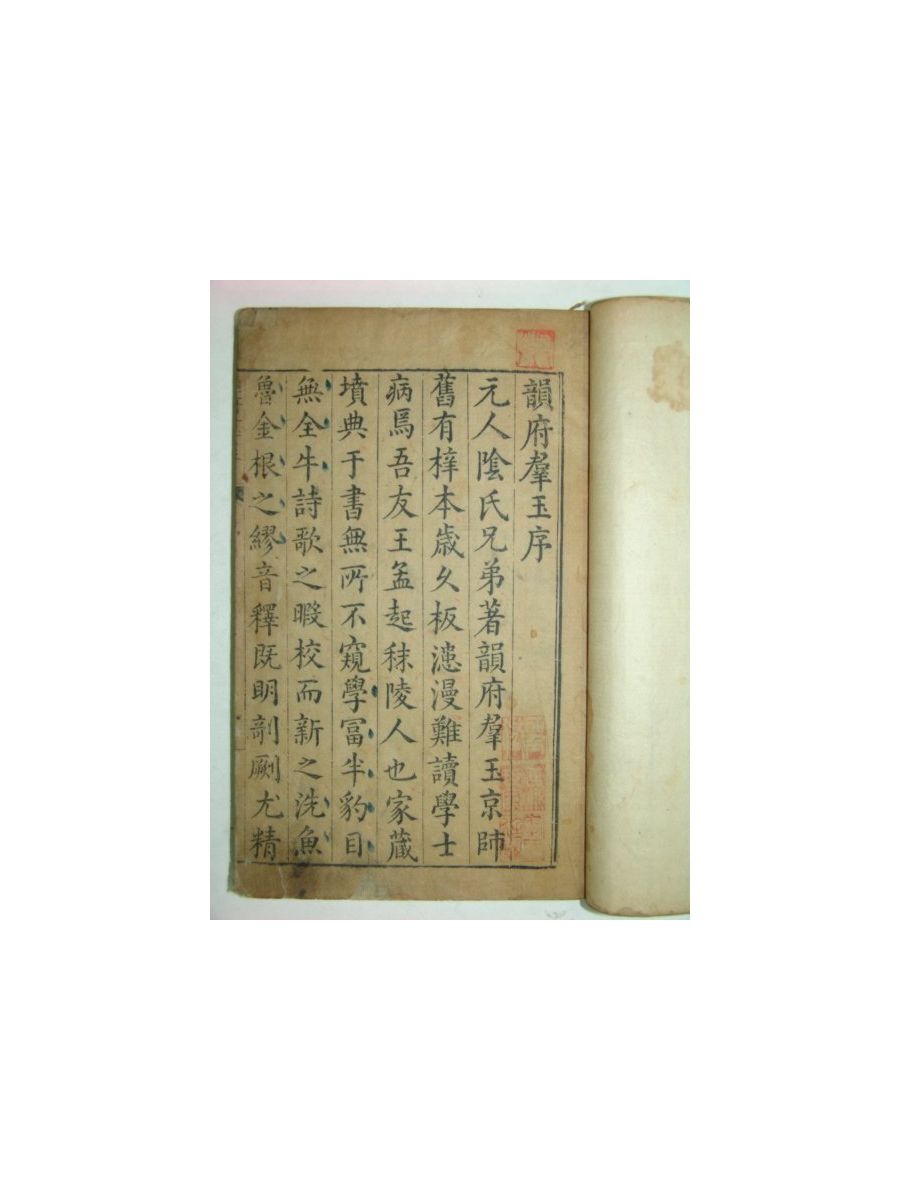 韻府羣玉序
元人陰氏兄弟著韻府羣玉京師
舊有梓本歳久板漶漫難讀學士
病焉吾友王孟起秣陵人也家蔵
墳典于書無所不窺學冨半豹目
無全牛詩歌之暇校而新之洗魚
魯金根之繆音釋既明剞劂尤精